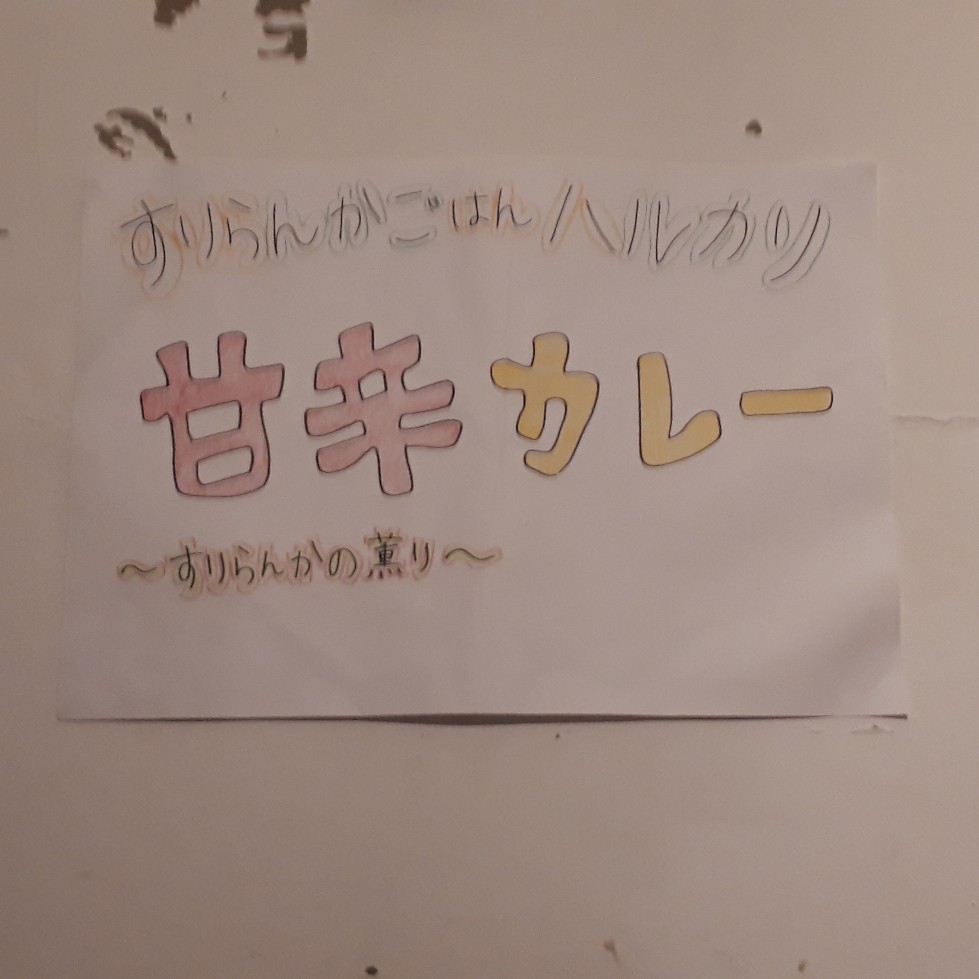 すりらんかごはんハルカリ
甘辛カレー
～すりらんかの薫り～